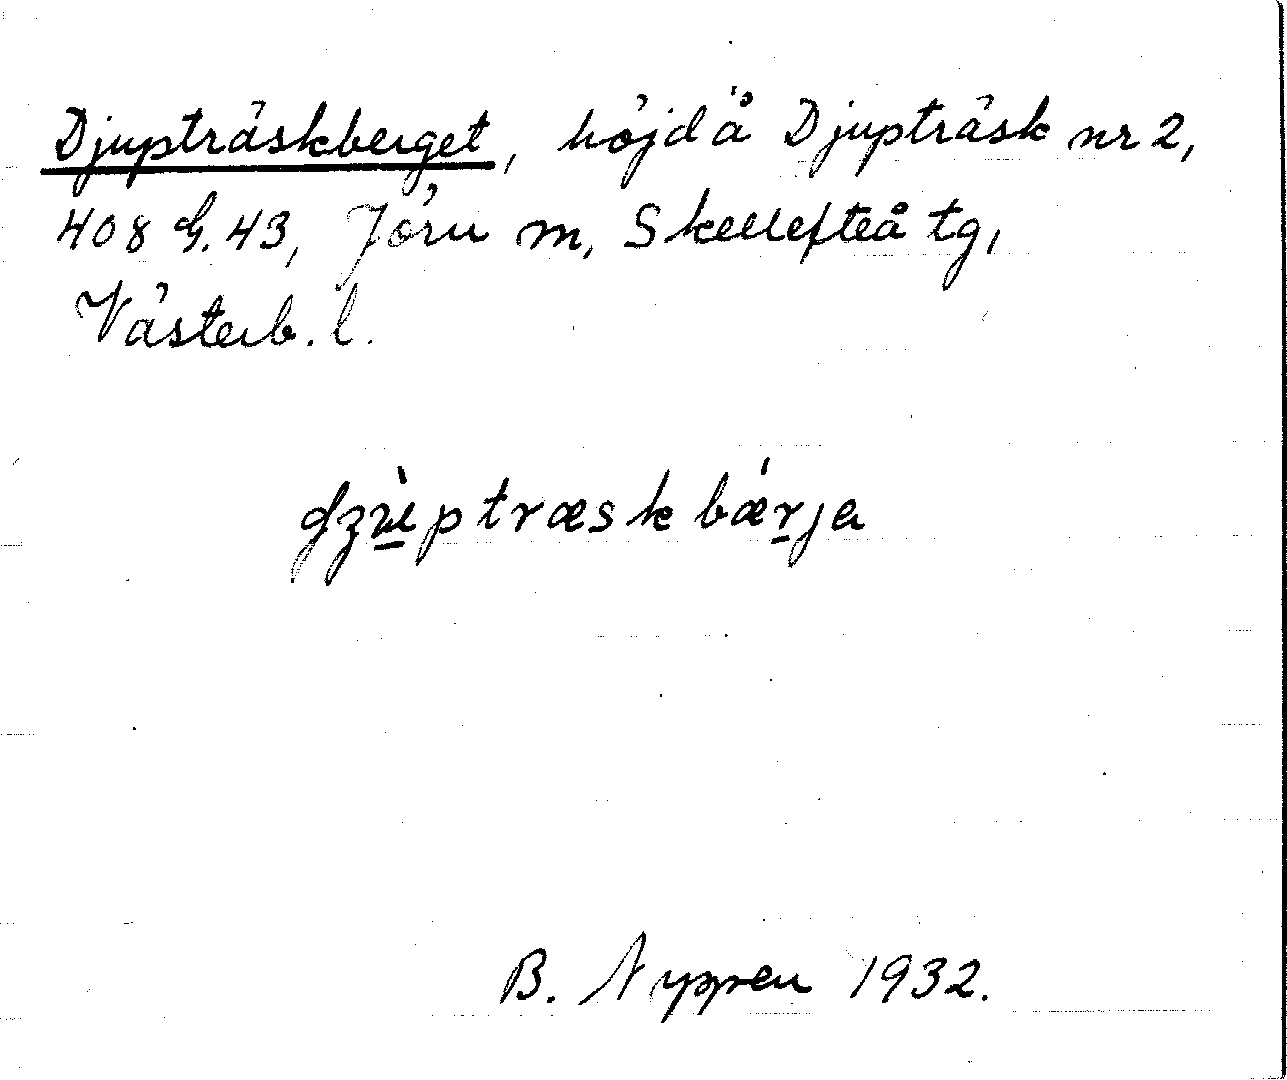 Djupträskberget, höjd å Djupträsk nr 2,
408 G. 43, Jörn m, Skellefteå tg,
Västerb. l.
B. Nyppen 1932.